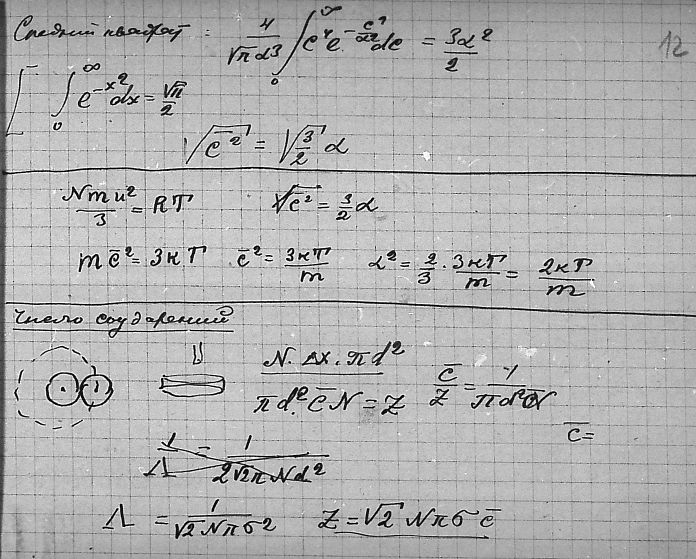 Средний квадрат: 4/(√π α3) ∫₀^∞ c⁴ e^(-c²/α²) dc = 3α²/2
12
[ ∫₀^∞ e^(-x²) dx = √π/2
√(c̄²) = √(3/2) α
Nmu²/3 = RT √(c̄²) = 3/2 α
m c̄² = 3кТ c̄² = 3кТ/m α² = 2/3 · 3кТ/m = 2кТ/m
Число соударений
N · Δx · πd²
πd² c̄ N = Z c̄/Z = 1/(πd²N)
c̄ =
1/Λ = 1/(2√2π Nd²)
Λ = 1/(√2 Nπσ2) Z = √2 Nπσ c̄